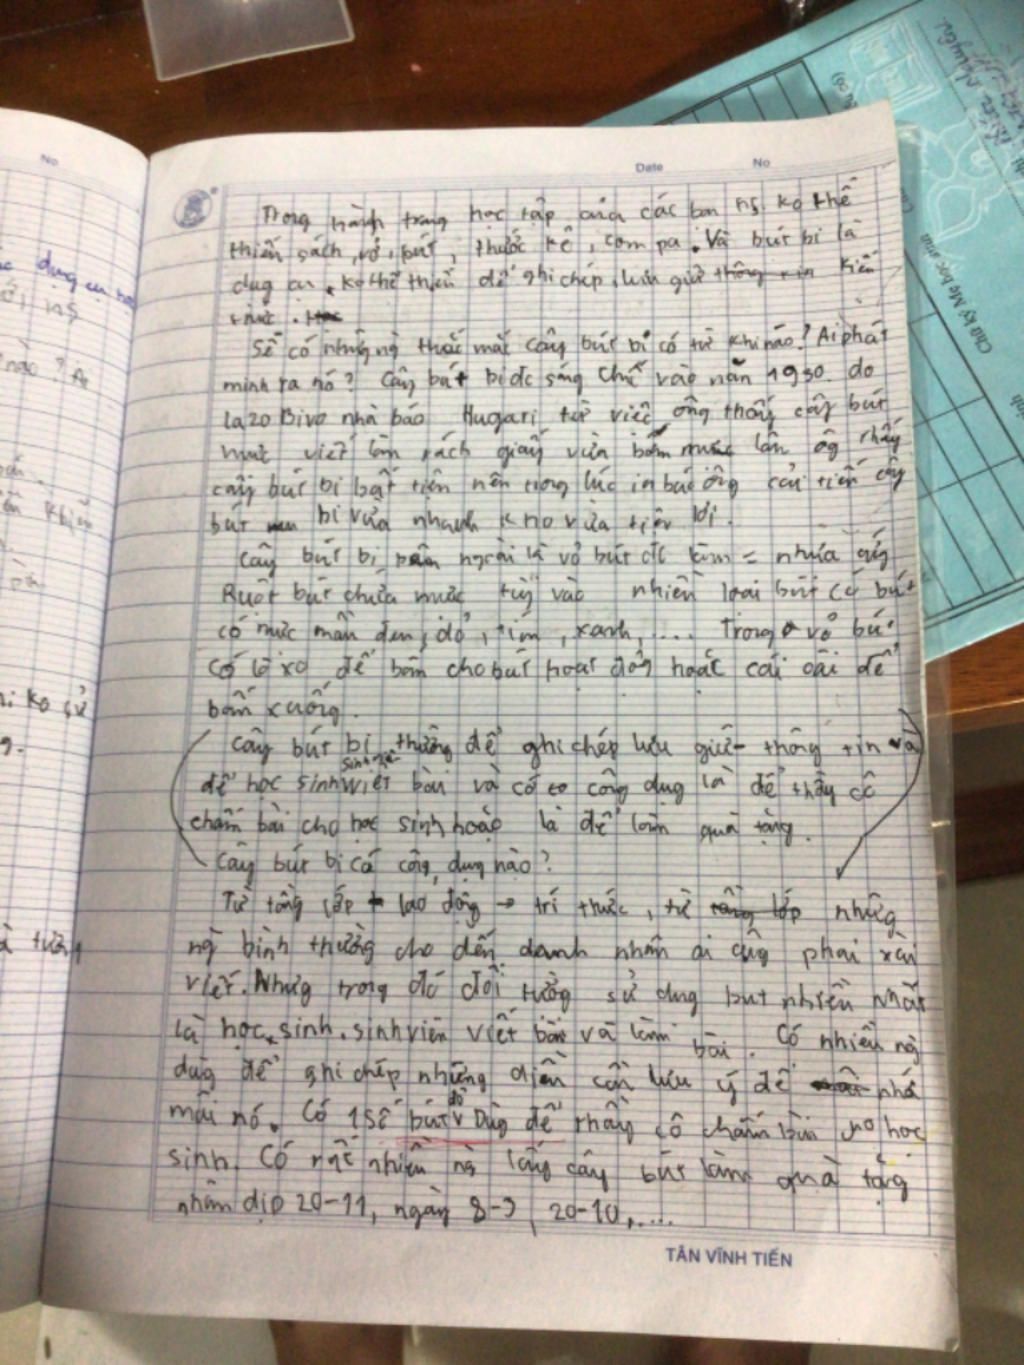 No
Date No
Trong hành trang học tập của các bạn ng ko thể
thiến sách, vở, bút, thước kẻ, com pa. Và bút bi là
dug cụ ko thể thiếu để ghi chép, lưu giữ thông tin kiến
thức.
Sẽ có những ng thắc mắc cây bút bi có từ khi nào? Ai phát
minh ra nó? Cây bút bi đc sáng chế vào năn 1930. do
lazo Bivo nhà báo Hugari từ việc ông thấy cây bút
mực viết làm rách giấy vừa bơm mực lâu ôg thấy
cây bút bi bất tiện nên trong lúc in báo ông cải tiến cây
bút bi vừa nhanh kho vừa tiện lợi.
Cây bút bi, bên ngoài là vỏ bút đc làm = nhựa
Ruột bút chứa mực tùy vào nhiền loại bút có bút
có mực mần đen, đỏ, tím, xanh, .... Trong vỏ bút
có lò xo để bấm cho bút hoạt độg hoặc cái để
bấm xuống.
Cây bút bi thường để ghi chép lưu giữ thông tin và
để học sinh sinh viên viết bài và có công dụg là để thầy cô
chấm bài cho học sinh hoặc là để làm quà tặng.
Cây bút bi có công dụng nào?
Từ tầng lớp lao động → trí thức, từ tầng lớp những
ng bình thường cho đến danh nhân ai cũg phai xài
viết. Nhưg trong đó đối tượg sử dụg but nhiền nhất
là học sinh, sinh viên viết bài và làm bài. Có nhiền ng
dùg để ghi chép những điền cần lưu ý để nhớ
mãi nó. Có 1 số bút đỏ Dùg để thầy cô chấm bài cho học
sinh. Có rất nhiền ng lấy cây bút làm quà tặg
nhân dịp 20-11, ngày 8-3, 20-10,....
TÂN VĨNH TIẾN
Chữ ký Mẹ học sinh